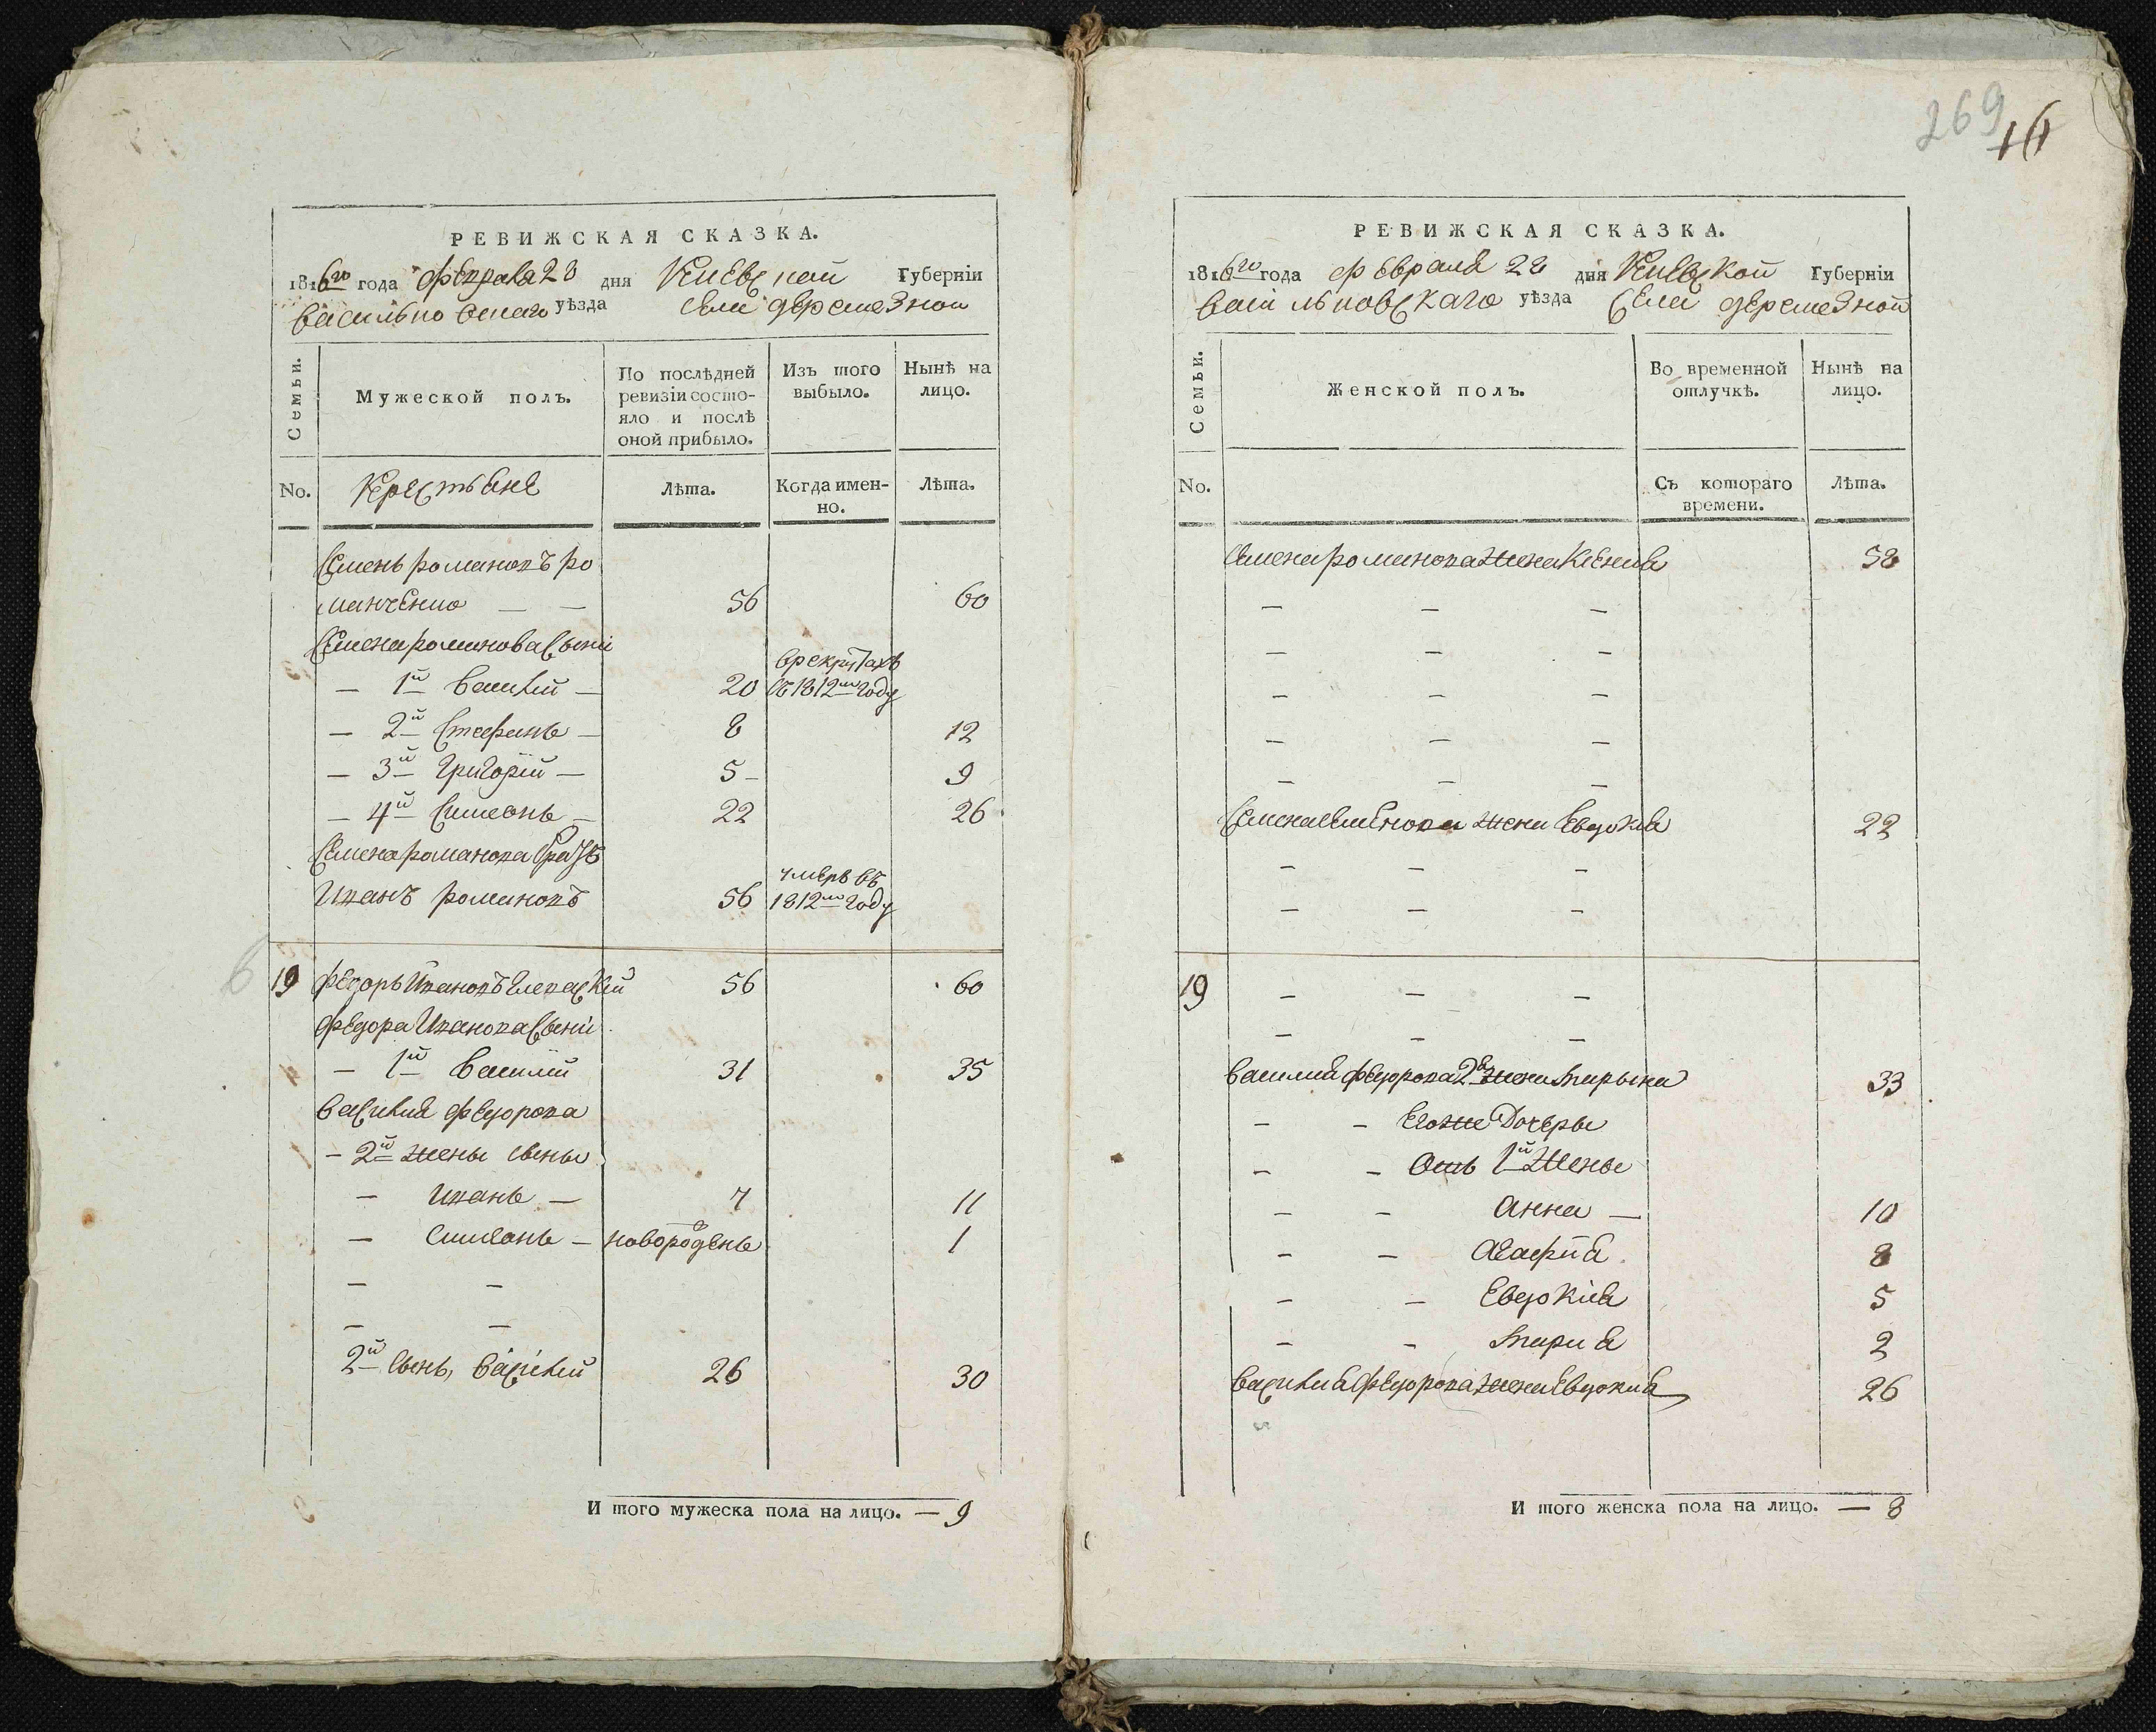 269
16
РЕВИЖСКАЯ СКАЗКА.
1816го года февраля 28 дня Киевской Губерніи
васильковскаго уѣзда села деремезной
Семьи.
Мужеской полъ.
По послѣдней ревизіи состояло и послѣ оной прибыло.
Изъ того выбыло.
Нынѣ на лицо.
No.
Крестьяне
Лѣта.
Когда именно.
Лѣта.
Семенъ романовъ ро
манченко — — 56 60
Семена романова сыни
— 1й василий — 20 врекрутахъ въ 1812м году
— 2й Стефанъ — 8 12
— 3й Григорій — 5 — 9
— 4й Симеонъ — 22 26
Семена романова братъ
Иванъ романовъ 56 умеръ въ 1812м году
19 федоръ Ивановъ 56 60
федора Иванова сыни
— 1й василій 31 35
василия федорова
— 2й жены сыны
— иванъ — 7 11
— симеонъ — новорожденъ 1
— —
— —
2й сынъ, василий 26 30
И того мужеска пола на лицо. — 9
РЕВИЖСКАЯ СКАЗКА.
1816го года февраля 28 дня Киевской Губерніи
васильковскаго уѣзда села деремезной
Семьи.
Женской полъ.
Во временной отлучкѣ.
Нынѣ на лицо.
No.
Съ котораго времени.
Лѣта.
Семена романова жена Ксения 58
— — —
— — —
— — —
— — —
— — —
Семена семенова жена Евдокия 22
— — —
— — —
19 — — —
— — —
василия федорова 2я жена марьяна 33
— — Егоже Дочеры
— — Отъ 1й Жены
— — Анна — 10
— — Агафия 8
— — Евдокия 5
— — мария 2
василия федорова жена Евдокия 26
И того женска пола на лицо. — 8